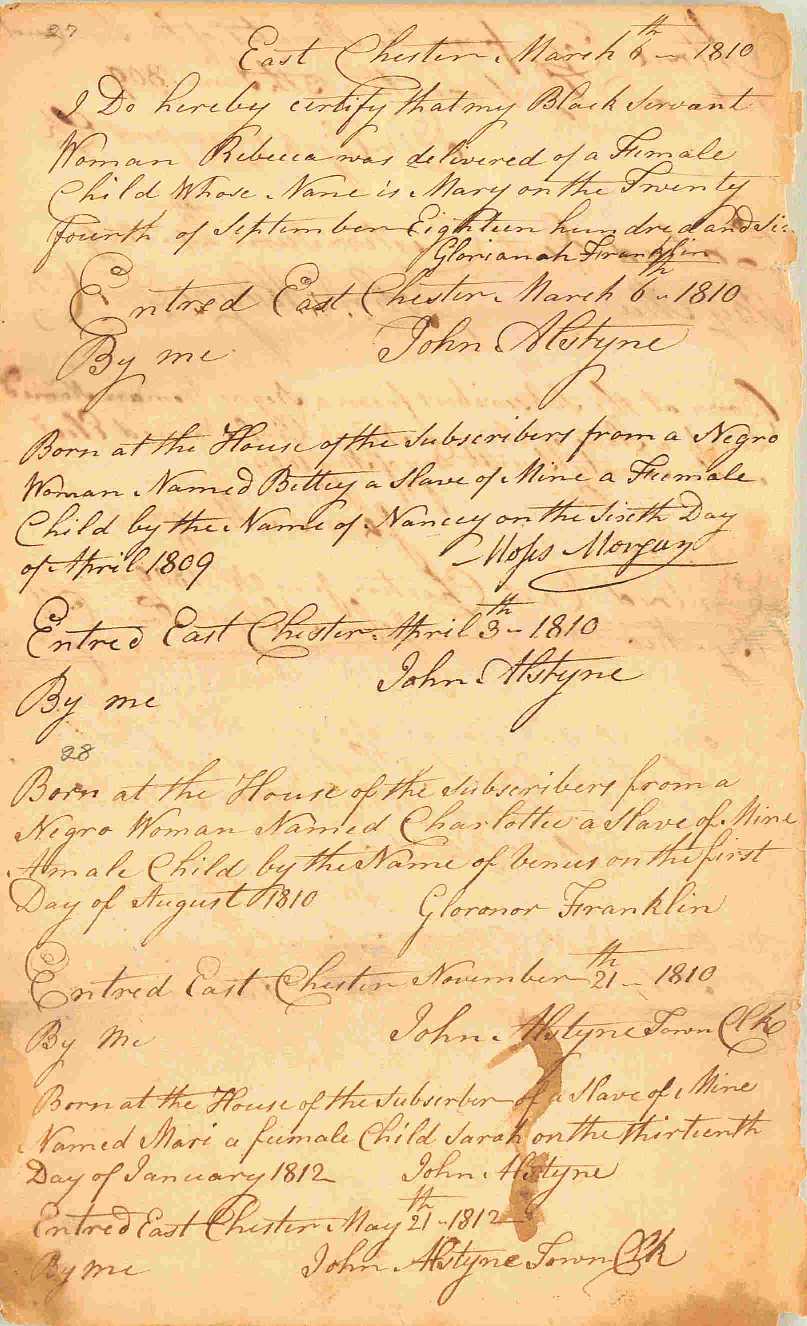 27
East Chester March 6th 1810
I Do hereby certify that my Black Servant
Woman Rebecca was delivered of a Female
Child Whose Name is Mary on the Twenty
fourth of September Eighteen hundred and Six
Glorianah Franklin
Entred East Chester March 6th 1810
By me John Alstyne
Born at the House of the Subscribers from a Negro
Woman Named Bettey a Slave of Mine a Feemale
Child by the Name of Nancey on the Sixth Day
of April 1809 Moses Morgan
Entred East Chester April 3th 1810
By me John Alstyne
28
Born at the House of the Subscribers from a
Negro Woman Named Charlottee a Slave of Mine
A male Child by the Name of Venus on the first
Day of August 1810 Gloronor Franklin
Entred East Chester November 21th 1810
By Me John Alstyne Town Clk
Born at the House of the Subscrber of a Slave of Mine
Named Mari a feumale Child Sarah on the thirteenth
Day of January 1812 John Alstyne
Entred East Chester May 21th 1812
By me John Alstyne Town Clk